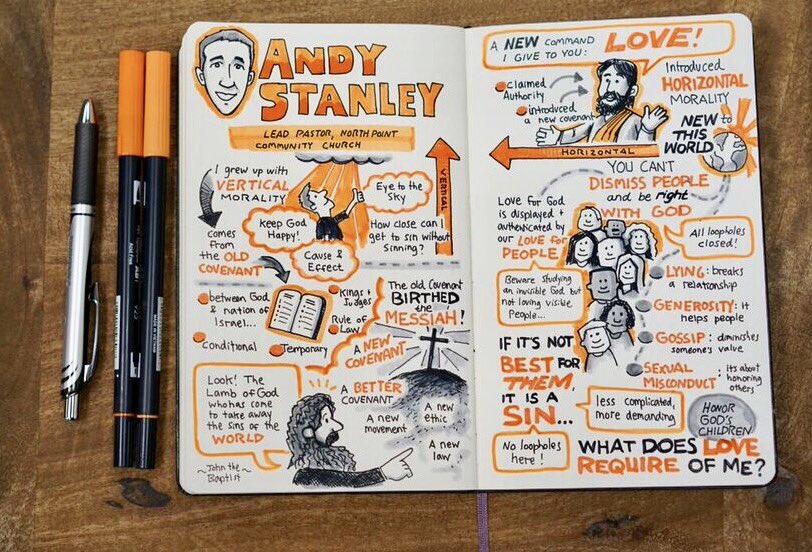 ANDY
STANLEY
LEAD PASTOR, NORTH POINT
COMMUNITY CHURCH
I grew up with
VERTICAL
MORALITY
comes
from
the OLD
COVENANT
Keep God
Happy!
Cause &
Effect
Eye to the
Sky
How close can I
get to sin without
Sinning?
VERTICAL
between God
& nation of
Israel...
Conditional
Temporary
Kings &
Judges
Rule of
Law
The old Covenant
BIRTHED
the
MESSIAH!
A NEW
COVENANT
A BETTER
COVENANT
A new
movement
A new
ethic
A new
law
Look! The
Lamb of God
who has come
to take away
the sins of the
WORLD
~John the~
Baptist
A NEW COMMAND
I GIVE TO YOU?
LOVE!
claimed
Authority
introduced
a new covenant
Introduced
HORIZONTAL
MORALITY
NEW to
THIS
WORLD
HORIZONTAL
YOU CAN'T
DISMISS PEOPLE
and be right
WITH GOD
LOVE for GOD
is displayed +
authenticated by
our LOVE for
PEOPLE
All loopholes
closed!
Beware studying
an invisible God but
not loving visible
People...
LYING: breaks
a relationship
GENEROSITY: it
helps people
GOSSIP: diminishes
someone's value
SEXUAL
MISCONDUCT: it's about
honoring
others
IF IT'S NOT
BEST FOR
THEM,
IT IS A
SIN...
less complicated,
more demanding
HONOR
GOD'S
CHILDREN
No loopholes
here!
WHAT DOES LOVE
REQUIRE OF ME?